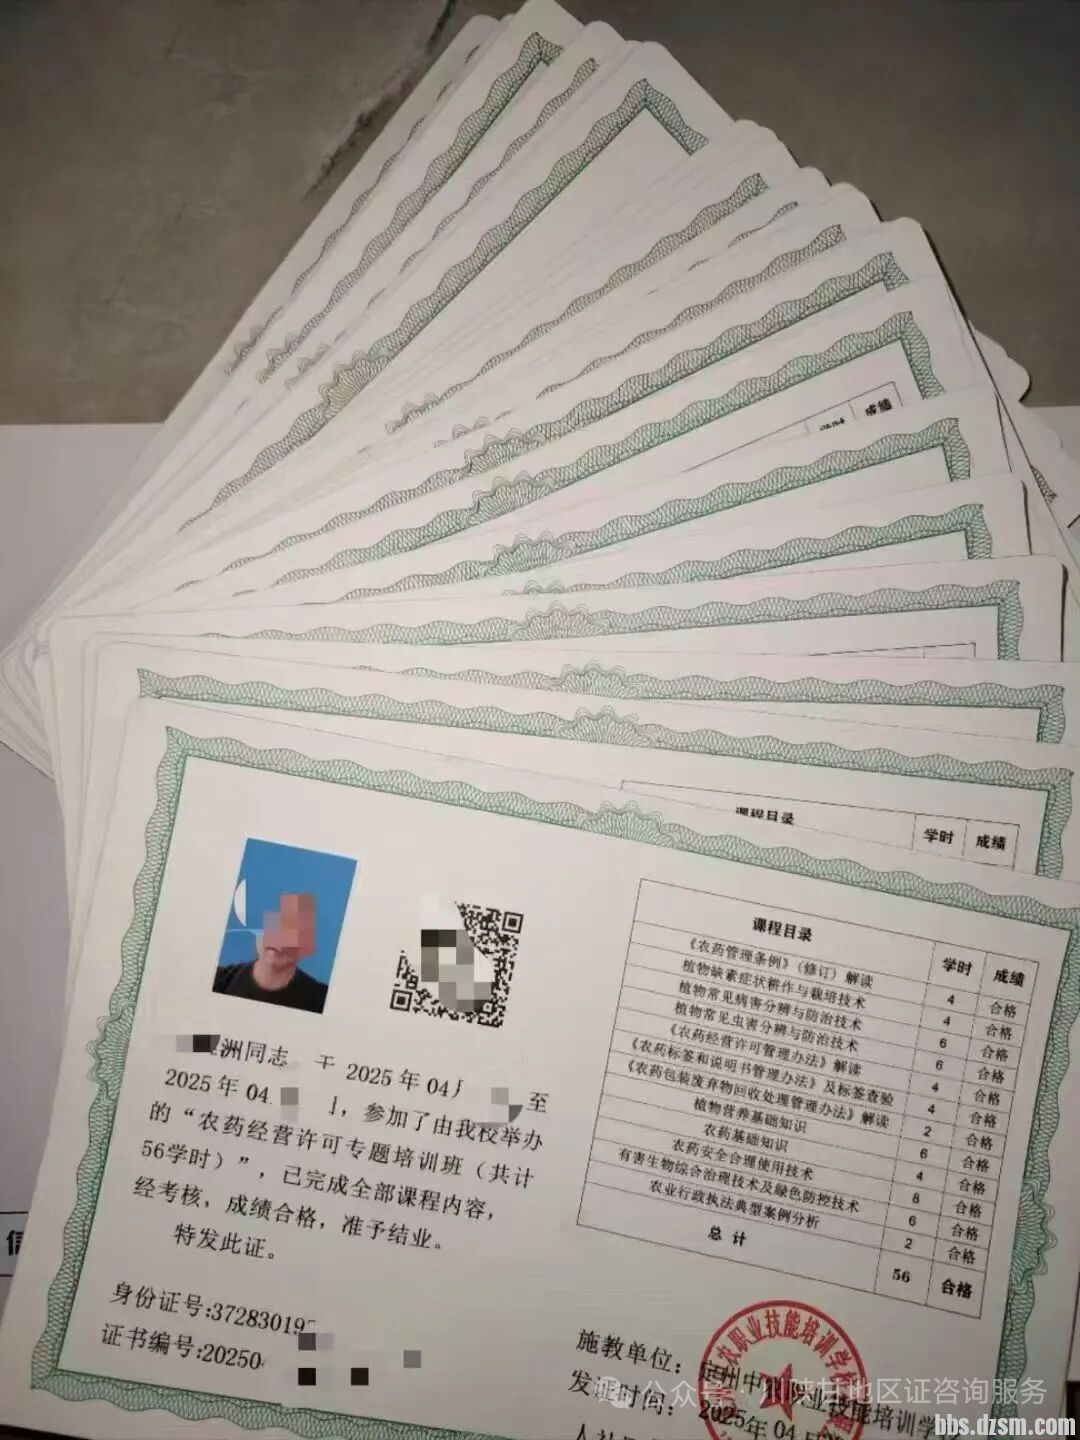 成绩
课程目录 学时 成绩
课程目录 学时 成绩
《农药管理条例》（修订）解读 4 合格
植物缺素症状耕作与栽培技术 4 合格
植物常见病害分辨与防治技术 6 合格
植物常见虫害分辨与防治技术 6 合格
《农药经营许可管理办法》解读 4 合格
《农药标签和说明书管理办法》及标签查验 4 合格
《农药包装废弃物回收处理管理办法》解读 2 合格
植物营养基础知识 6 合格
农药基础知识 4 合格
农药安全合理使用技术 8 合格
有害生物综合治理技术及绿色防控技术 6 合格
农业行政执法典型案例分析 2 合格
总 计 56 合格
洲同志 于 2025年04月 至
2025年04. ，参加了由我校举办
的“农药经营许可专题培训班（共计
56学时）”，已完成全部课程内容，
经考核，成绩合格，准予结业。
特发此证。
身份证号:37283019
证书编号:20250
农职业技能培训学
施教单位：定州中 职业技能培训学
发证时间：2025年04月
公众号·川陕甘地区证咨询服务
bbs.dzsm.com